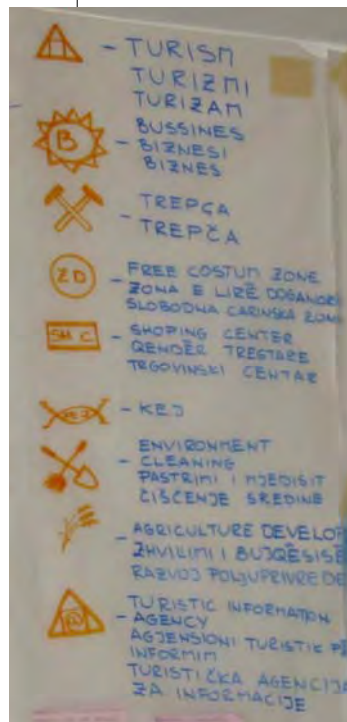 - TURISM
TURIZMI
TURIZAM
B
BUSSINES
- BIZNESI
BIZNES
TREPÇA
- TREPČA
ZD
FREE COSTUM ZONE
- ZONA E LIRË DOGANORE
SLOBODNA CARINSKA ZONA
SH C.
- SHOPING CENTER
QENDËR TREGTARE
TRGOVINSKI CENTAR
- KEJ
ENVIRONMENT
- CLEANING
PASTRIMI I MJEDISIT
ČIŠĆENJE SREDINE
- AGRICULTURE DEVELOP
ZHVILIMI I BUJQËSISË
RAZVOJ POLJUPRIVREDE
TURISTIC INFORMATION
- AGENCY
AGJENSIONI TURISTIK PË
INFORMIM
TURISTIČKA AGENCIJA
ZA INFORMACIJE